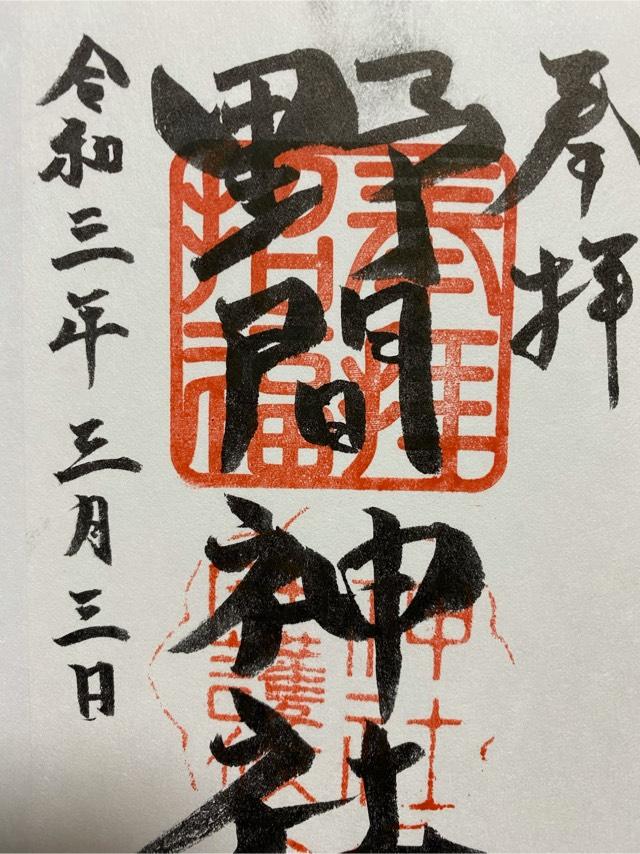 奉拝
野間神社
令和三年三月三日
奉拝
招福
神社